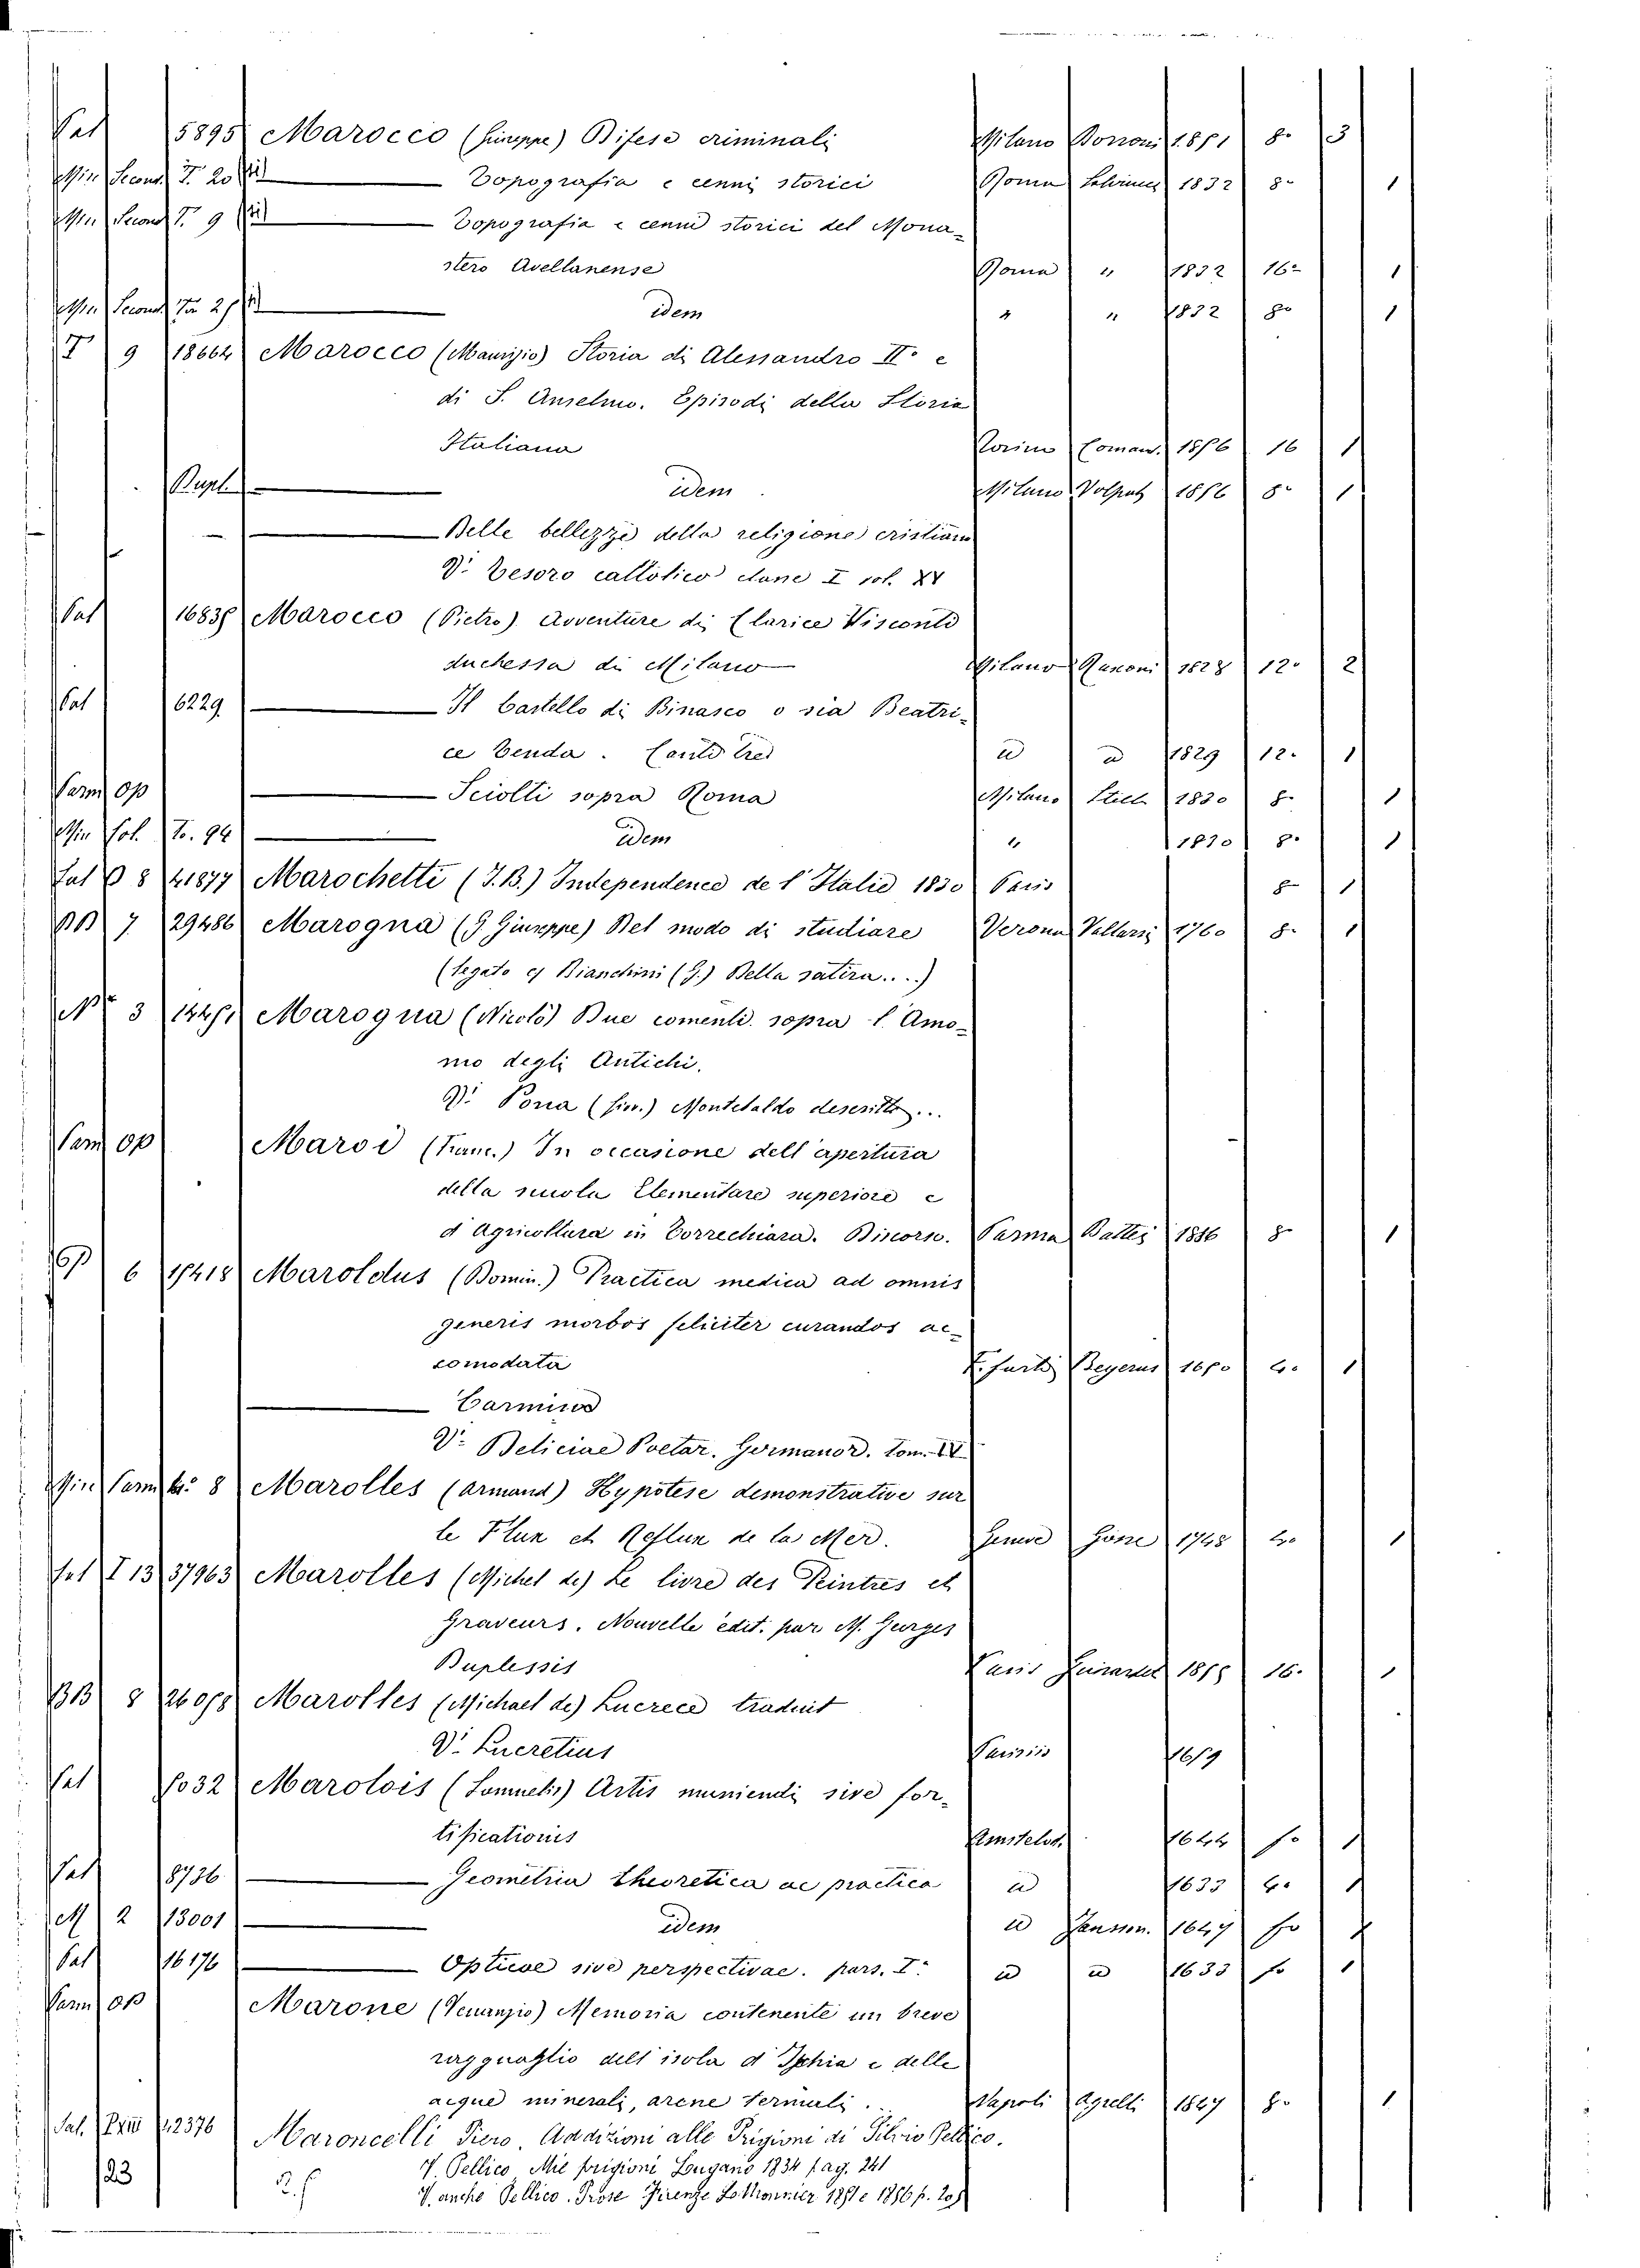 Sal 5895 Marocco (Giuseppe) Difese criminali Milano Bononi 1851 8° 3
Min Second T. 20 Topografia e cenni storici Roma 1832 8° 1
Min Second T. 9 Topografia e cenni storici del Mona-
stero Avellanense Roma " 1832 16° 1
Min Second To 25 idem " " 1832 8° 1
T 9 18664 Marocco (Maurizio) Storia di Alessandro II° e
di S. Anselmo. Episodi della Storia
Italiana Torino Coman. 1856 16 1
Dupl. idem Milano Volpato 1856 8° 1
— Delle bellezze della religione cristiana
V. Tesoro cattolico clase I vol. XV
Sal 16835 Marocco (Pietro) Avventure di Clarice Visconti
duchessa di Milano Milano Ranoni 1828 12° 2
Sal 6229 Il Castello di Binasco o sia Beatri-
ce Tenda. Canti trei " " 1829 12. 1
Parm op Sciolti sopra Roma Milano Stell. 1830 8. 1
Min fol. To. 94 idem " 1830 8. 1
Sal β 8 41877 Marochetti (J.B.) Independence de l'Italie 1830 Paris 8° 1
BB 7 29486 Marogna (G Giuseppe) Del modo di studiare Verona Vallarsi 1760 8. 1
(legato c/ Bianchini (G.) Della satira....)
N 3 Marogna (Nicolò) Due comenti. sopra l'Amo-
mo degli Antichi.
V. Pona (Giov.) Montebaldo descritto...
Parm op Maroi (Franc.) In occasione dell'apertura
della scuola Elementare superiore e
d'Agricoltura in Torrechiara. Discorso. Parma Battei 1886 8° 1
6 15418 Maroldus (Domin.) Practica medica ad omnis
generis morbos feliciter curandos ac-
comodata Erfurti Beyerus 1650 4. 1
Carmina
V. Deliciae Poetar. Germanor. Tom. IV
Min Parm to. 8 Marolles (Armand) Hypotese demonstrative sur
le Flux et Reflux de la Mer. Genève Gosse 1748 4° 1
Sal I 13 37963 Marolles (Michel de) Le livre des Peintres et
Graveurs. Nouvelle édit. par M. Georges
Duplessis Paris 1855 16. 1
BB 8 26058 Marolles (Michael de) Lucrece traduit
V. Lucretius Parisiis 1659
Sal 5032 Marolois (Samuelis) Artis muniendi sive for-
tificationis Amstelod. 1644 fo 1
Sal 8736 Geometria theoretica ac practica " 1633 4. 1
M 2 13001 idem " Jansson. 1647 fo 1
Sal 16176 Opticae sive perspectivae. pars. I. " " 1633 fo 1
Parm op Marone (Venanzio) Memoria contenente un breve
ragguaglio dell'isola d'Ischia e delle
acque minerali, arene termali. Napoli Agrelli 1847 8° 1
Sal. 42376 Maroncelli Piero. Addizioni alle Prigioni di Silvio Pellico.
V. Pellico, Mie prigioni Lugano 1834 pag. 241
23 V. anche Pellico. Prose Firenze Le Monnier 1851 e 1856 p. 205